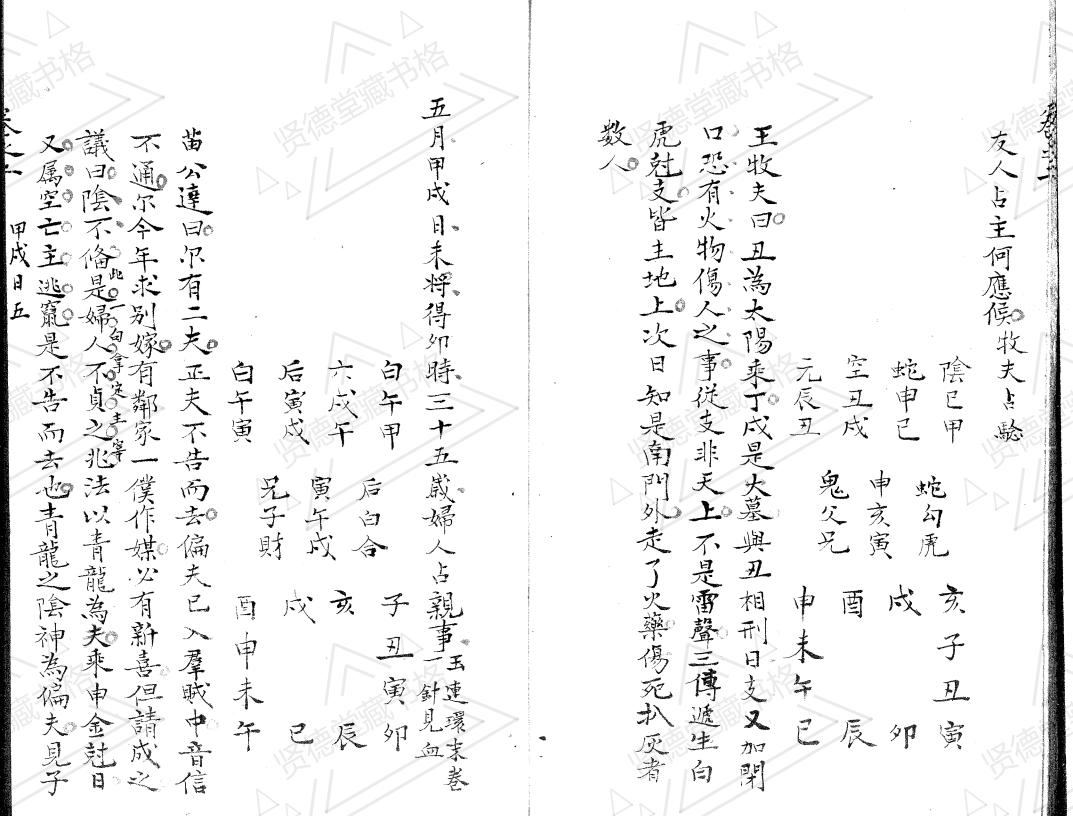 友人占主何應候牧夫占驗
陰巳甲
蛇申巳
空丑戌
元辰丑
蛇勾虎
申亥寅
鬼父兄
亥子丑寅
戌 卯
酉 辰
申未午巳
王牧夫曰丑為太陽乘丁戌是火墓與丑相刑日支又加閉
口恐有火物傷人之事從支非天上不是雷聲三傳遞生白
虎尅支皆主地上次日知是南門外走了火藥傷死扒灰者
數人
五月甲戌日未將得卯時三十五歲婦人占親事
玉連環末卷
一針見血
白午甲
六戌午
后寅戌
白午寅
后白合
寅午戌
兄子財
子丑寅卯
亥 辰
戌 巳
酉申未午
苗公達曰尔有二夫正夫不告而去偏夫已入羣賊中音信
不通尔今年求別嫁有鄰家一僕作媒必有新喜但請成之
議曰陰不俻是婦人不貞之兆法以青龍為夫乘申金尅日
此一句拿定主寧
又属空亡主逃竄是不告而去也青龍之陰神為偏夫見子
甲戌日五
贤德堂藏书格